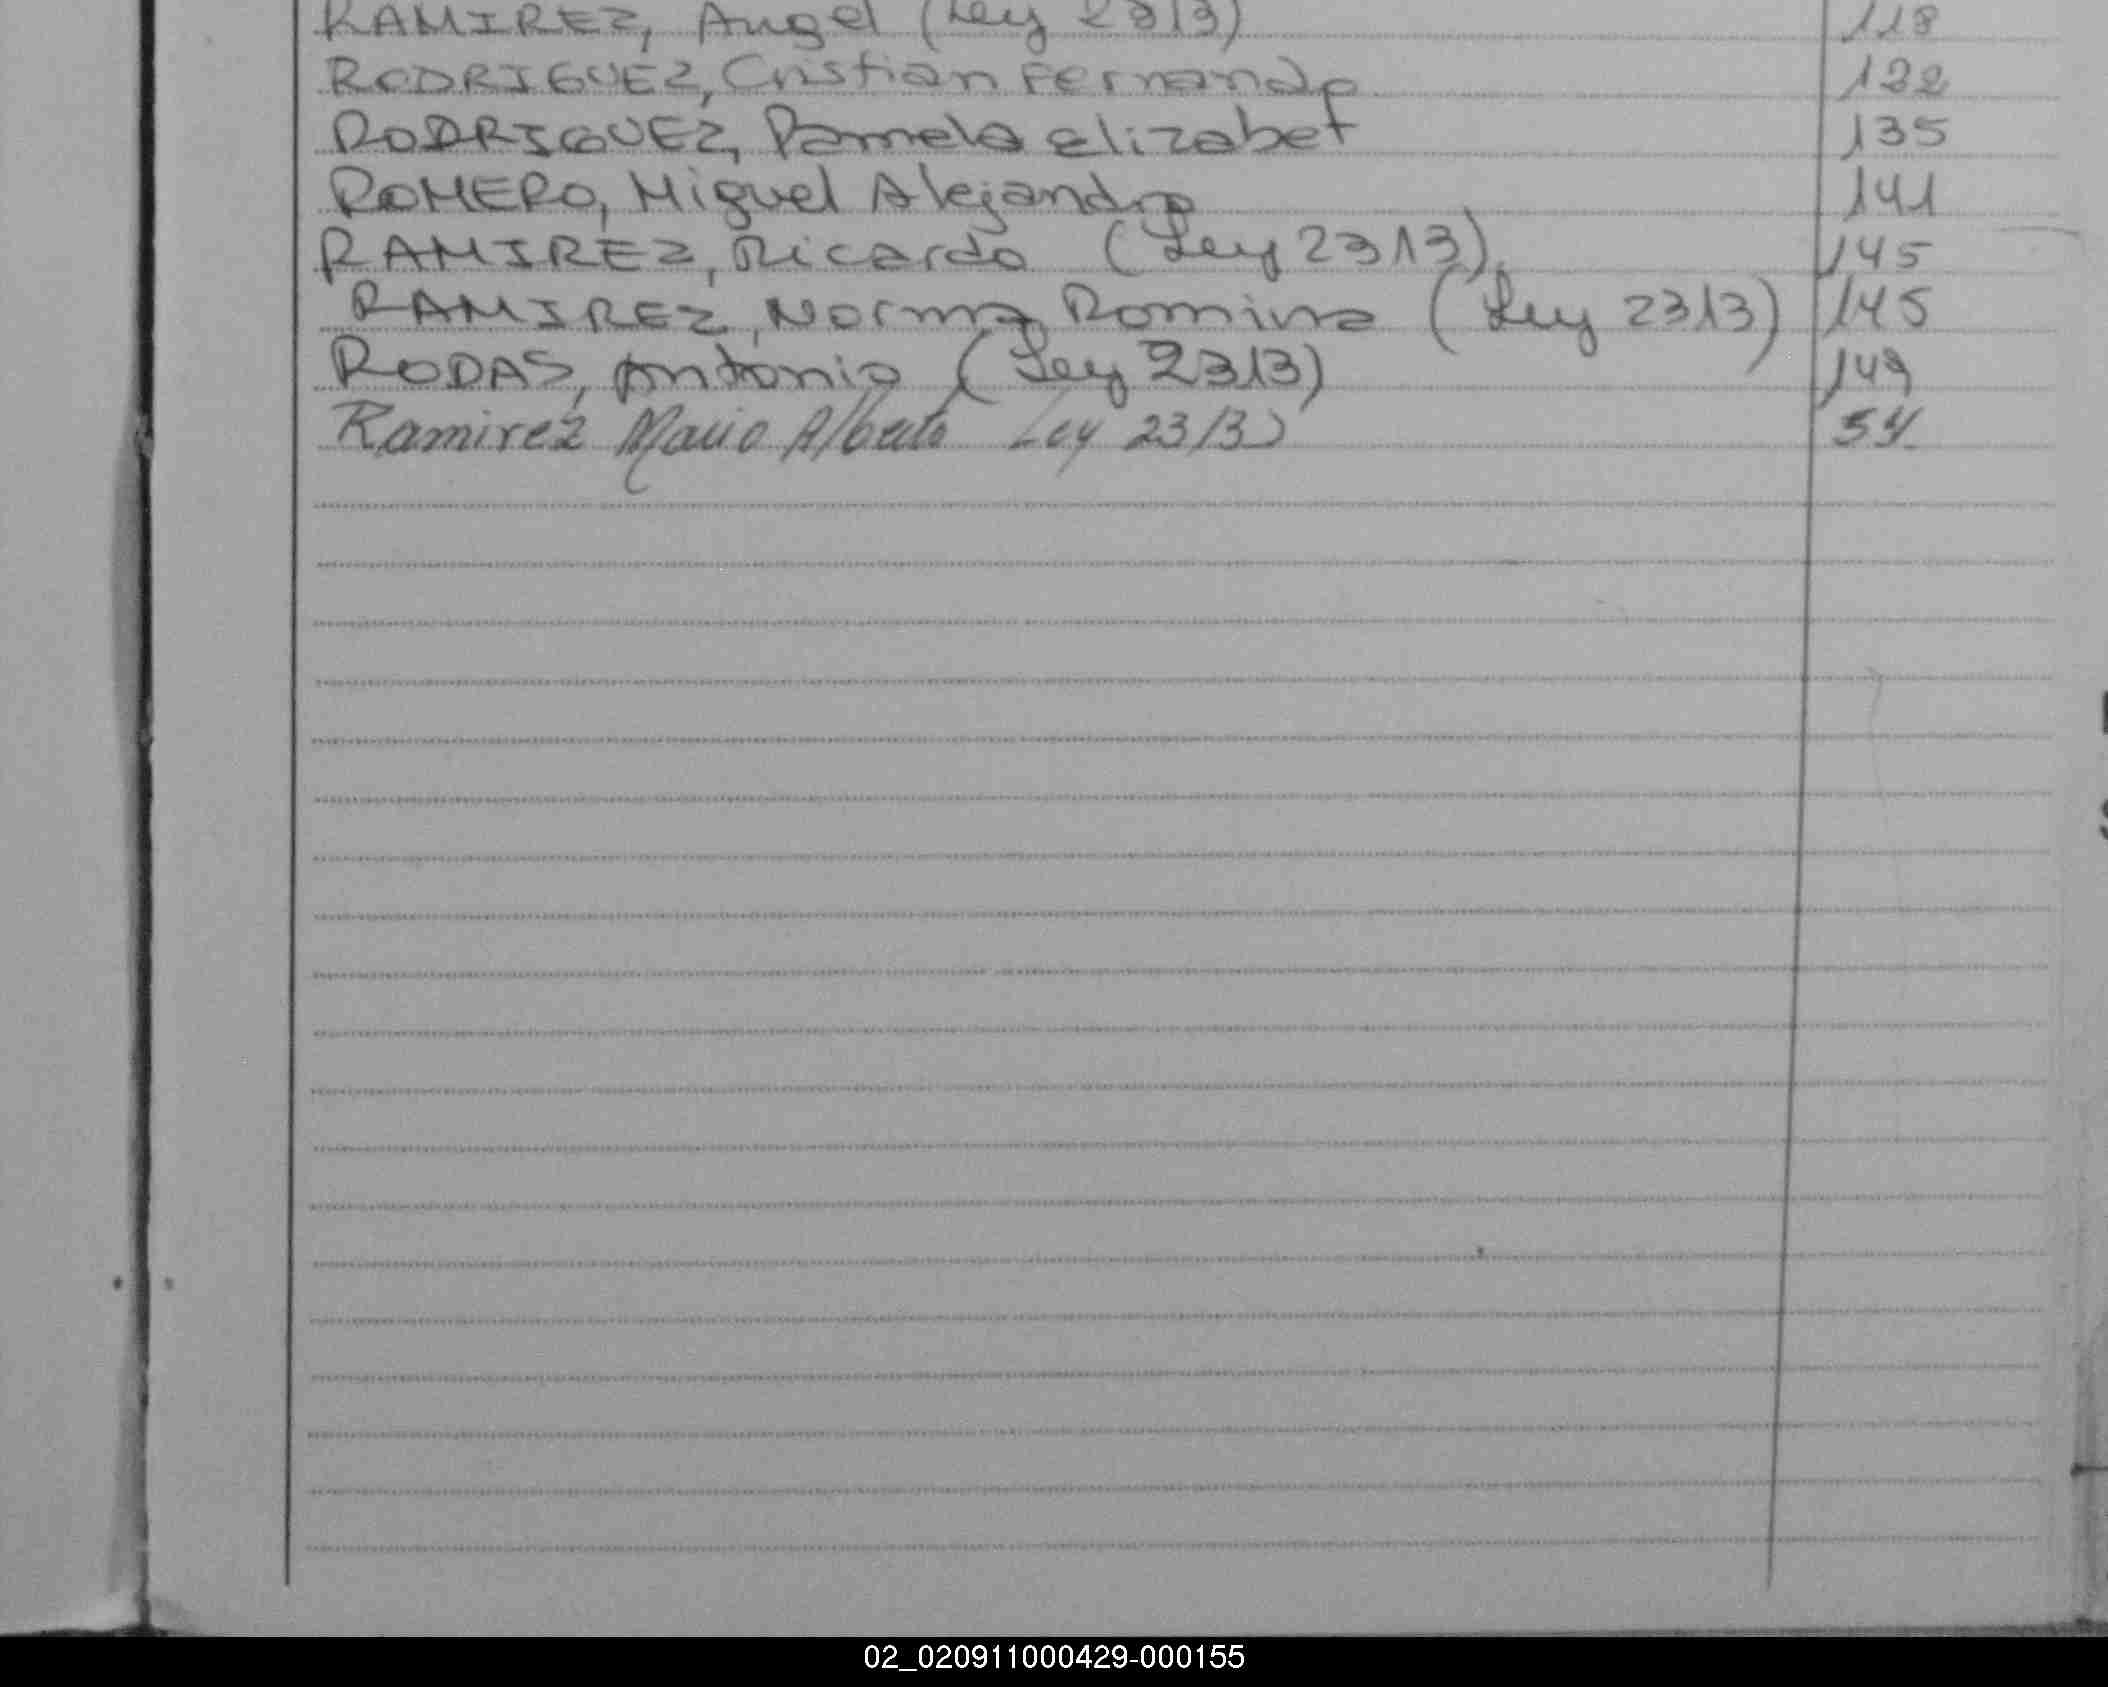 RAMIREZ, Angel (Ley 2313) 118
RODRIGUEZ, Cristian Fernando 122
RODRIGUEZ, Pamela Elizabet 135
ROMERO, Miguel Alejandro 141
RAMIREZ, Ricardo (Ley 2313) 145
RAMIREZ, Norma Romina (Ley 2313) 145
RODAS, Antonio (Ley 2313) 149
Ramirez Mario Alberto Ley 2313) 54
02_020911000429-000155